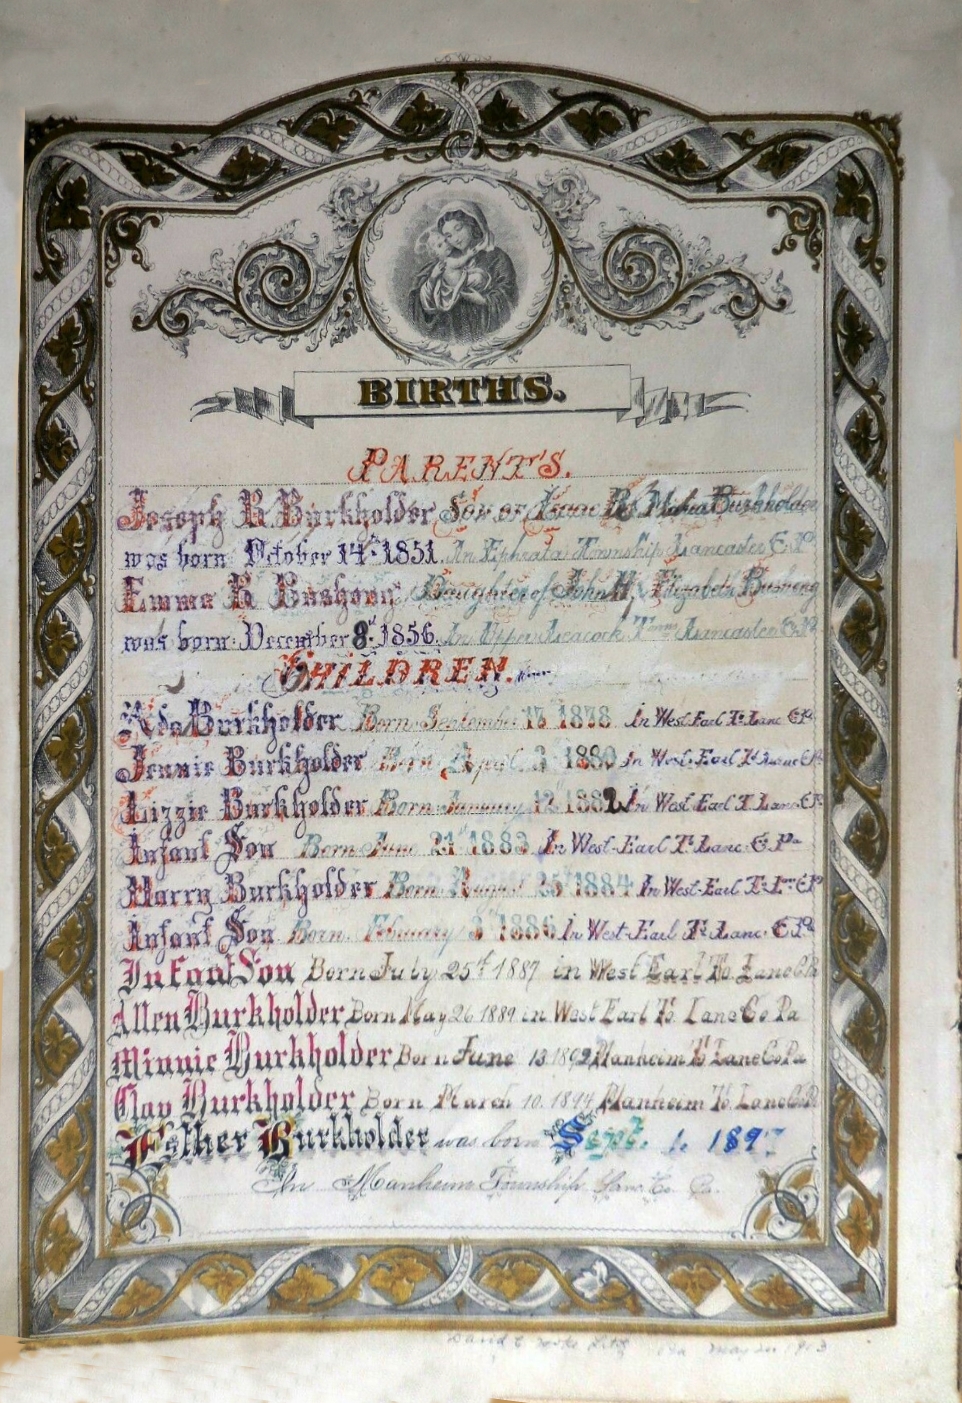 BIRTHS.
PARENT'S.
Joseph R Burkholder Son of Isaac B & Maria Burkholder
was born October 14th 1851. In Ephrata Township Lancaster C. Pa
Emma R Bushong Daughter of John H. & Elizabeth Bushong
was born December 8th 1856. In Upper Leacock Lancaster C. Pa
CHILDREN.
Ada Burkholder Born September 1878 In West Earl Tp. Lanc. C. Pa
Jennie Burkholder Born April 3 1880 In West Earl Tp. Lanc C. Pa
Lizzie Burkholder Born January 12 1882 In West Earl T. Lanc. C. Pa
Infant Son Born June 21st 1883 In West Earl Tp. Lanc. C. Pa
Harry Burkholder Born August 25th 1884 In West Earl T. Lanc C. Pa
Infant Son Born February 3d 1886 In West Earl Tp. Lanc. C. Pa
Infant Son Born July 25th 1887 in West Earl To. Lanc C. Pa
Allen Burkholder Born May 26 1889 in West Earl To. Lanc Co Pa
Minnie Burkholder Born June 13 1892 Manheim T Lanc Co Pa
Clay Burkholder Born March 10. 1894 Manheim To. Lanc Co. Pa
Esther Burkholder was born Sept. 1. 1897
In Manheim Township Lanc. Co. Pa.
David C May